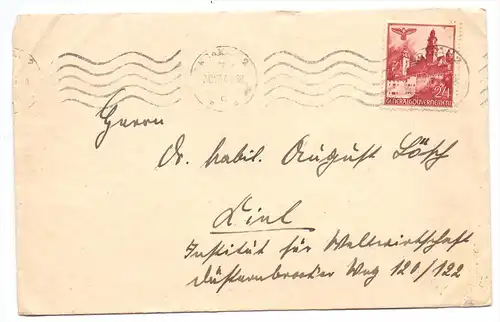 24
GENERALGOUVERNEMENT
Herrn
Dr. habil. August Lösch
Kiel
Institut für Weltwirtschaft
Düsternbrooker Weg 120/122